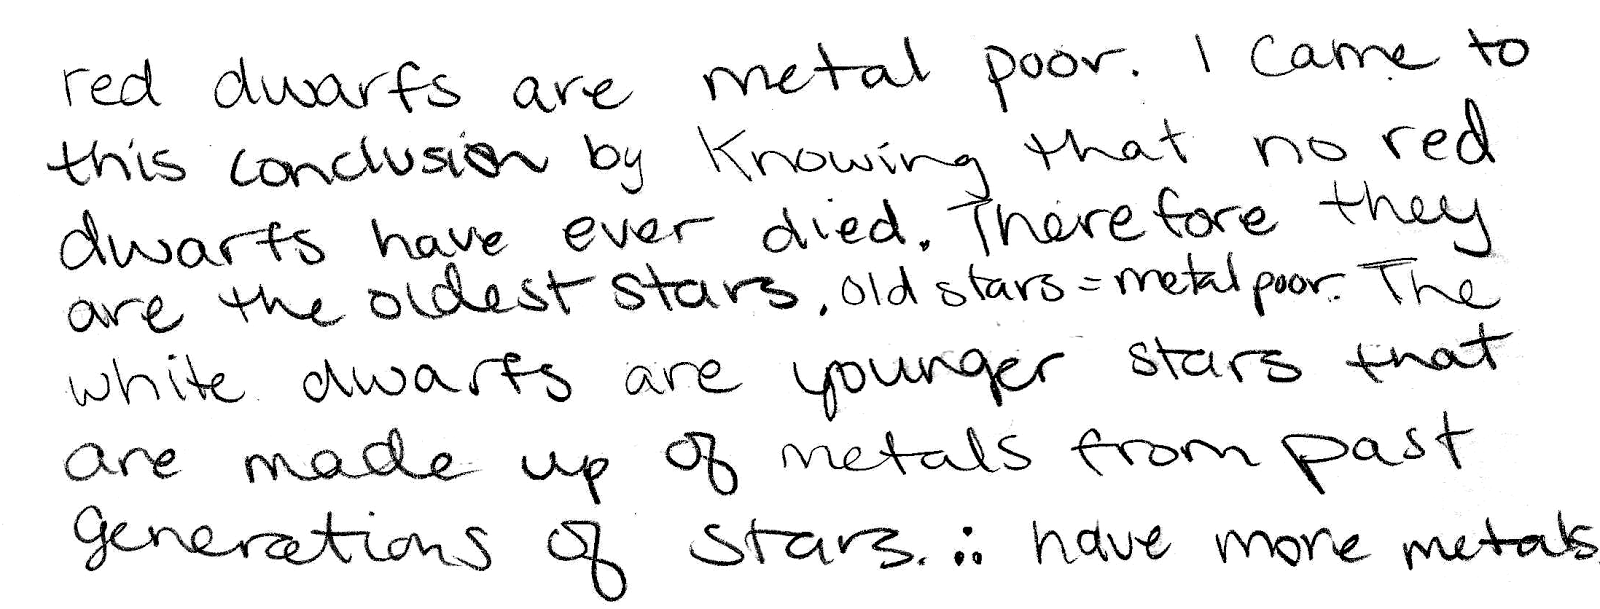 red dwarfs are metal poor. I came to
this conclusion by Knowing that no red
dwarfs have ever died. Therefore they
are the oldest stars. old stars = metal poor. The
white dwarfs are younger stars that
are made up of metals from past
generations of stars. ∴ have more metals.